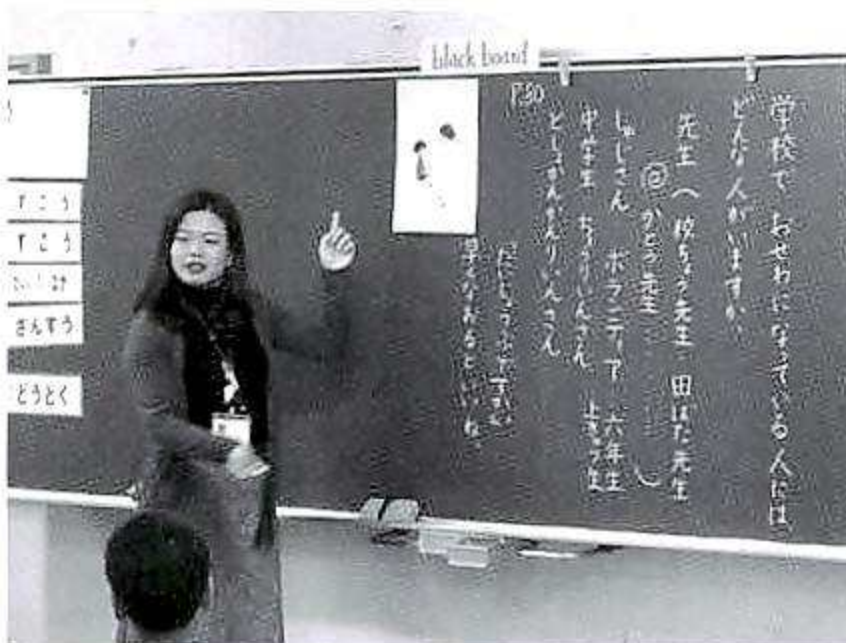 black board
P.80
学校で おせわになっている人には
どんな人がいますか。
先生へ 校ちょう先生 田はた先生
かとう先生
しゅじさん ボランティア 六年生
中学生 ちょうりいんさん 上きゅう生
としょかんかんりいんさん
だいじょうぶですか。
早くなおるといいね。
すこう
すこう
さんすう
どうとく